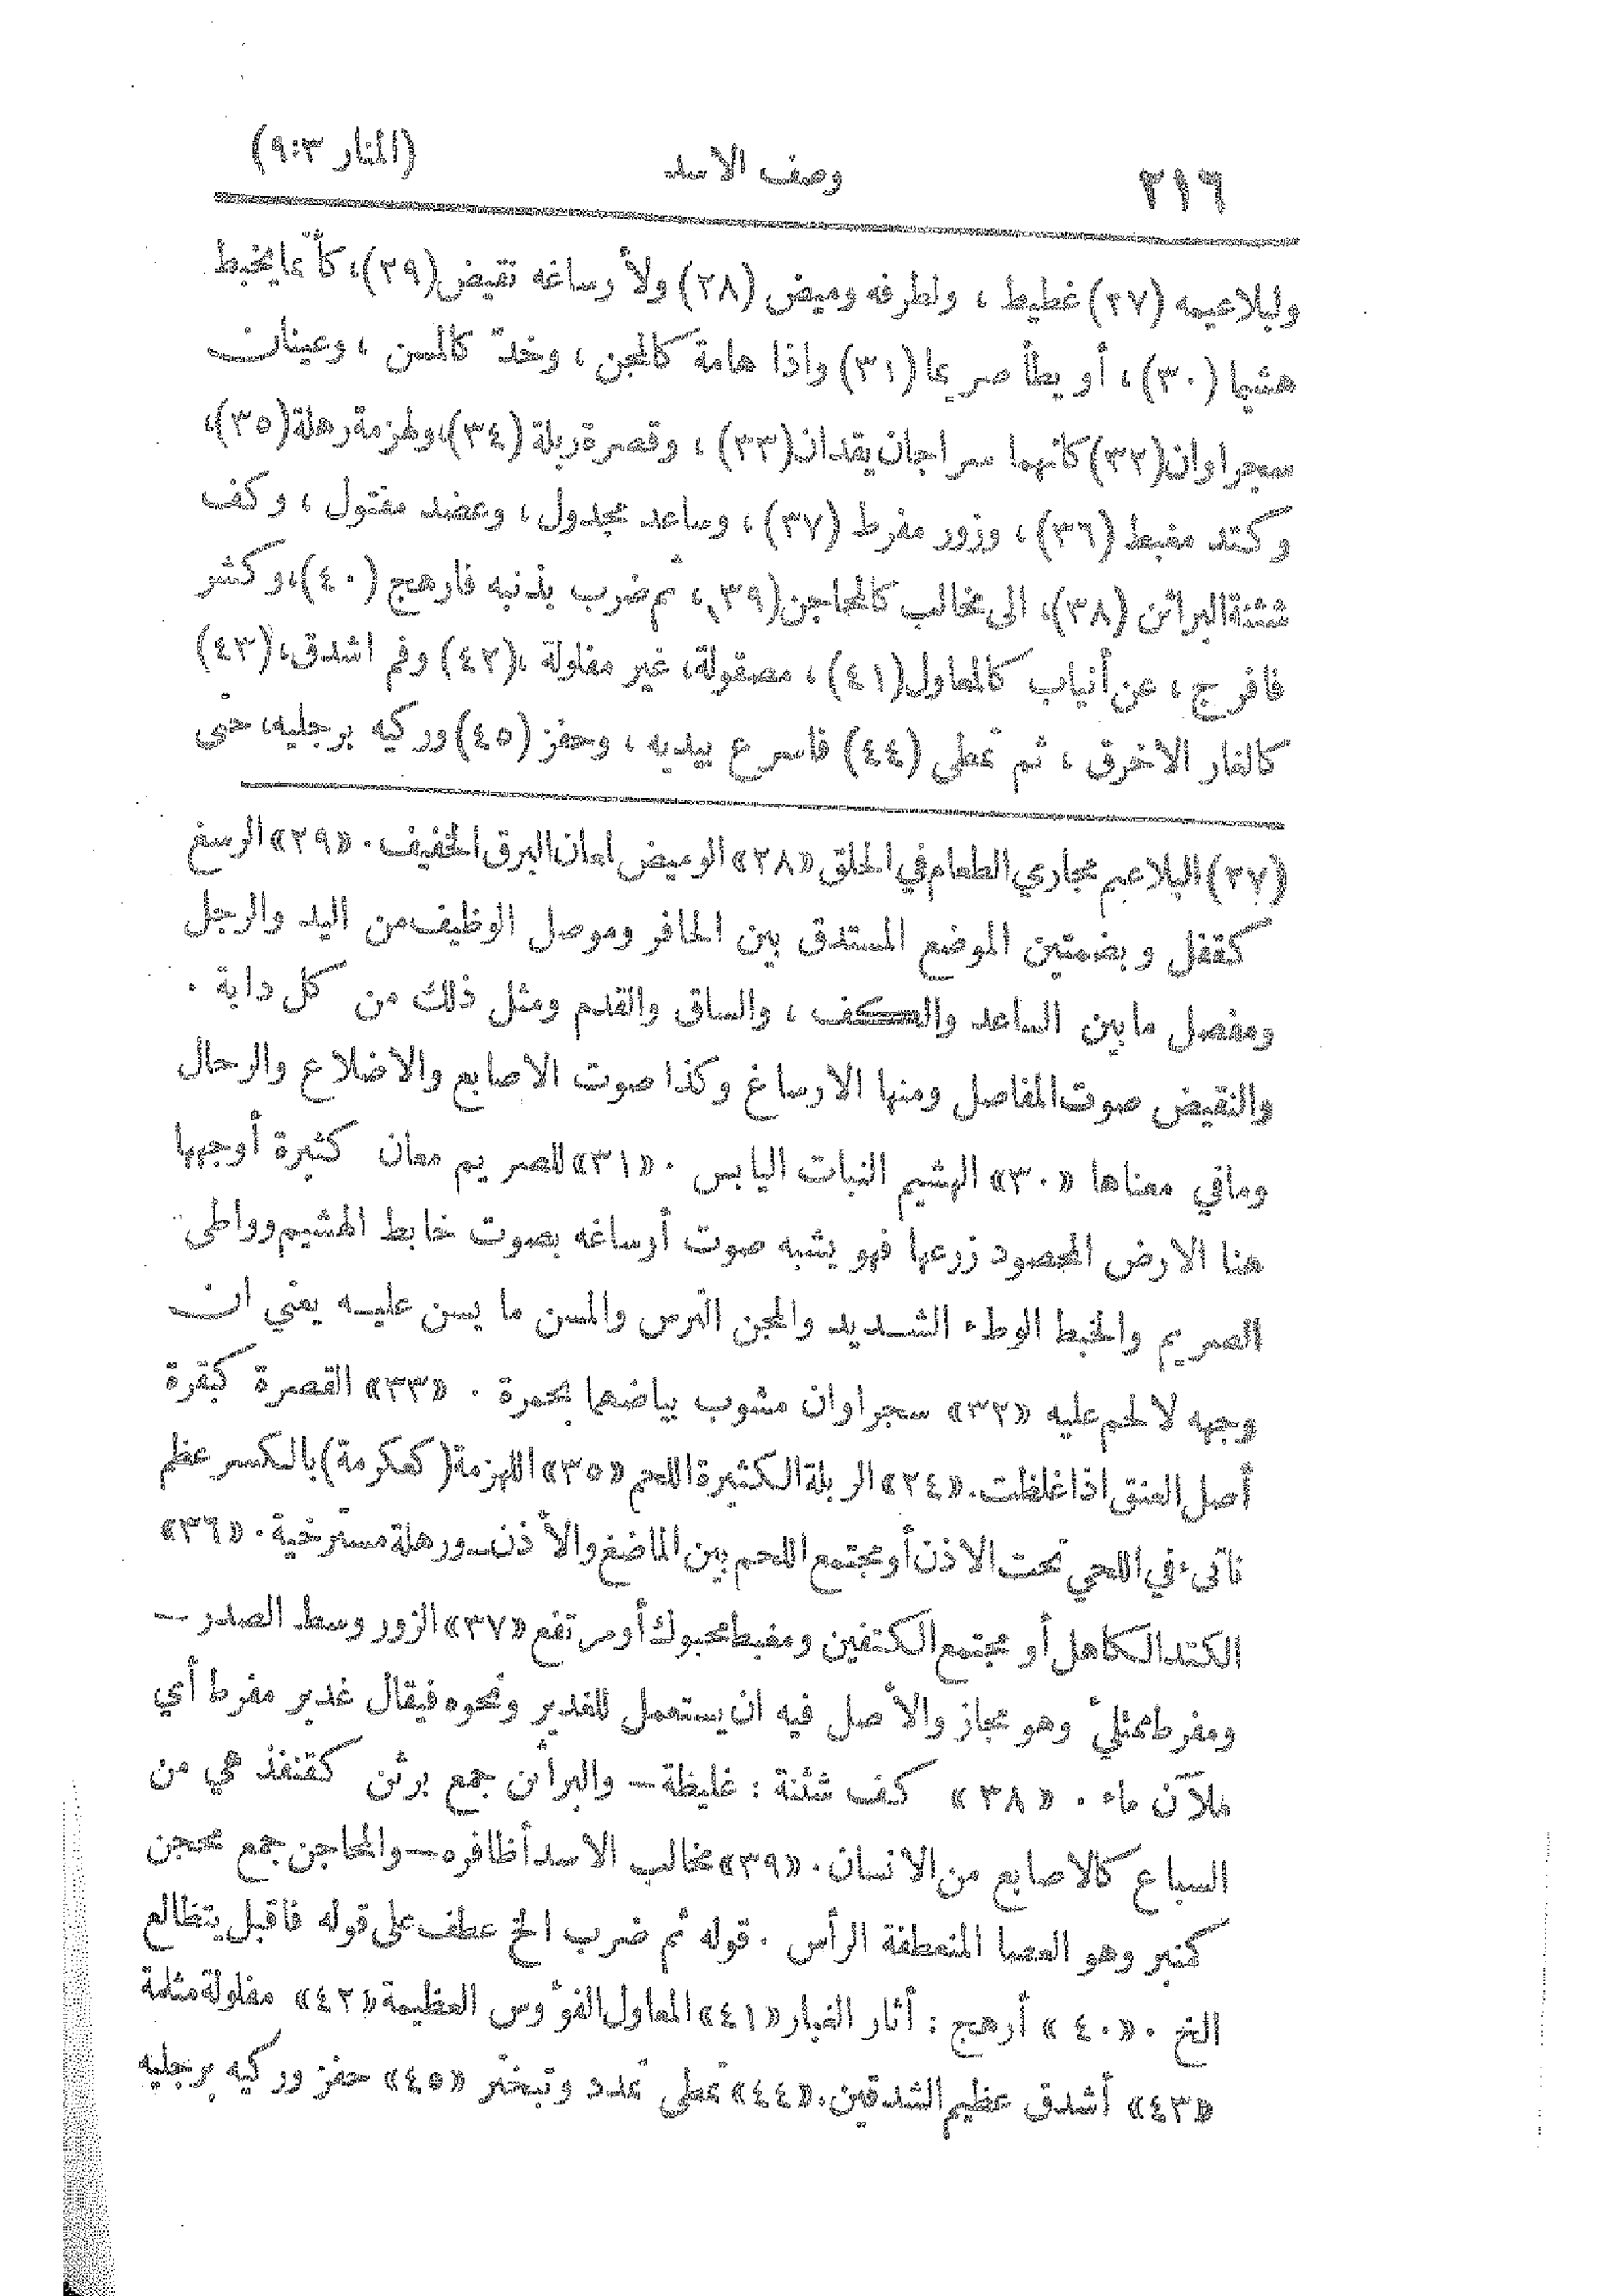 ٢١٦ وصف الاسد (المنار ٩:٣)
ولبلاعيمه (٢٧) غطيط ، ولطرفه وميض (٢٨) ولأرساغه نقيض (٢٩)، كأنما يخبط
هشيما (٣٠)، أو يطأ صريما (٣١) واذا هامة كالمجن ، وخدّ كالمسن ، وعينان
سجراوان (٣٢) كأنهما سراجان يقدان (٣٣) ، وقصرة ربلة (٣٤)، ولهزمة رهلة (٣٥)،
وكتد مغبط (٣٦)، وزور مفرط (٣٧)، وساعد مجدول ، وعضد مفتول ، وكف
شثنة البراثن (٣٨)، الى مخالب كالمحاجن (٣٩)، ثم ضرب بذنبه فارهج (٤٠)، وكشر
فافرج ، عن أنياب كالمعاول (٤١) ، مصقولة، غير مفلولة ،(٤٢) وفم اشدق، (٤٣)
كالغار الاخرق ، ثم تمطى (٤٤) فاسرع بيديه ، وحفز (٤٥) وركيه برجليه، حتى
(٢٧) البلاعيم مجاري الطعام في الحلق «٢٨» الوميض لمعان البرق الخفيف . «٢٩» الرسغ
كقفل وبضمتين الموضع المستدق بين الحافر وموصل الوظيف من اليد والرجل
ومفصل ما بين الساعد والكف ، والساق والقدم ومثل ذلك من كل دابة .
والنقيض صوت المفاصل ومنها الارساغ وكذا صوت الاصابع والاضلاع والرحال
وما في معناها «٣٠» الهشيم النبات اليابس . «٣١» للصريم معان كثيرة أوجهها
هنا الارض المحصود زرعها فهو يشبه صوت أرساغه بصوت خابط الهشيم وواطئ
الصريم والخبط الوطء الشديد والمجن الترس والمسن ما يسن عليه يعني ان
وجهه لا لحم عليه «٣٢» سجراوان مشوب بياضهما بحمرة . «٣٣» القصرة كبقرة
أصل العنق اذا غلظت. «٢٤» الربلة الكثيرة اللحم «٣٥» اللهزمة (كعكرمة) بالكسر عظم
ناتىء في اللحي تحت الاذن أو مجتمع اللحم بين الماضغ والأذن ــ ورهلة مسترخية . «٣٦»
الكتد الكاهل أو مجتمع الكتفين ومغبط محبوك أو مرتفع «٣٧» الزور وسط الصدر —
ومفرط ممتلئ وهو مجاز والأصل فيه ان يستعمل للغدير ونحوه فيقال غدير مفرط أي
ملآن ماء . «٣٨» كف شثنة : غليظة — والبراثن جمع برثن كقنفذ هي من
السباع كالاصابع من الانسان . «٣٩» مخالب الاسد أظافره — والمحاجن جمع محجن
كمنبر وهو العصا المنعطفة الرأس . قوله ثم ضرب الخ عطف على قوله فاقبل يتظالع
الخ . «٤٠» أرهج : أثار الغبار «٤١» المعاول الفؤوس العظيمة «٤٢» مفلولة مثلمة
«٤٣» أشدق عظيم الشدقين . «٤٤» تمطى تمدد وتبختر «٤٥» حفز وركيه برجليه